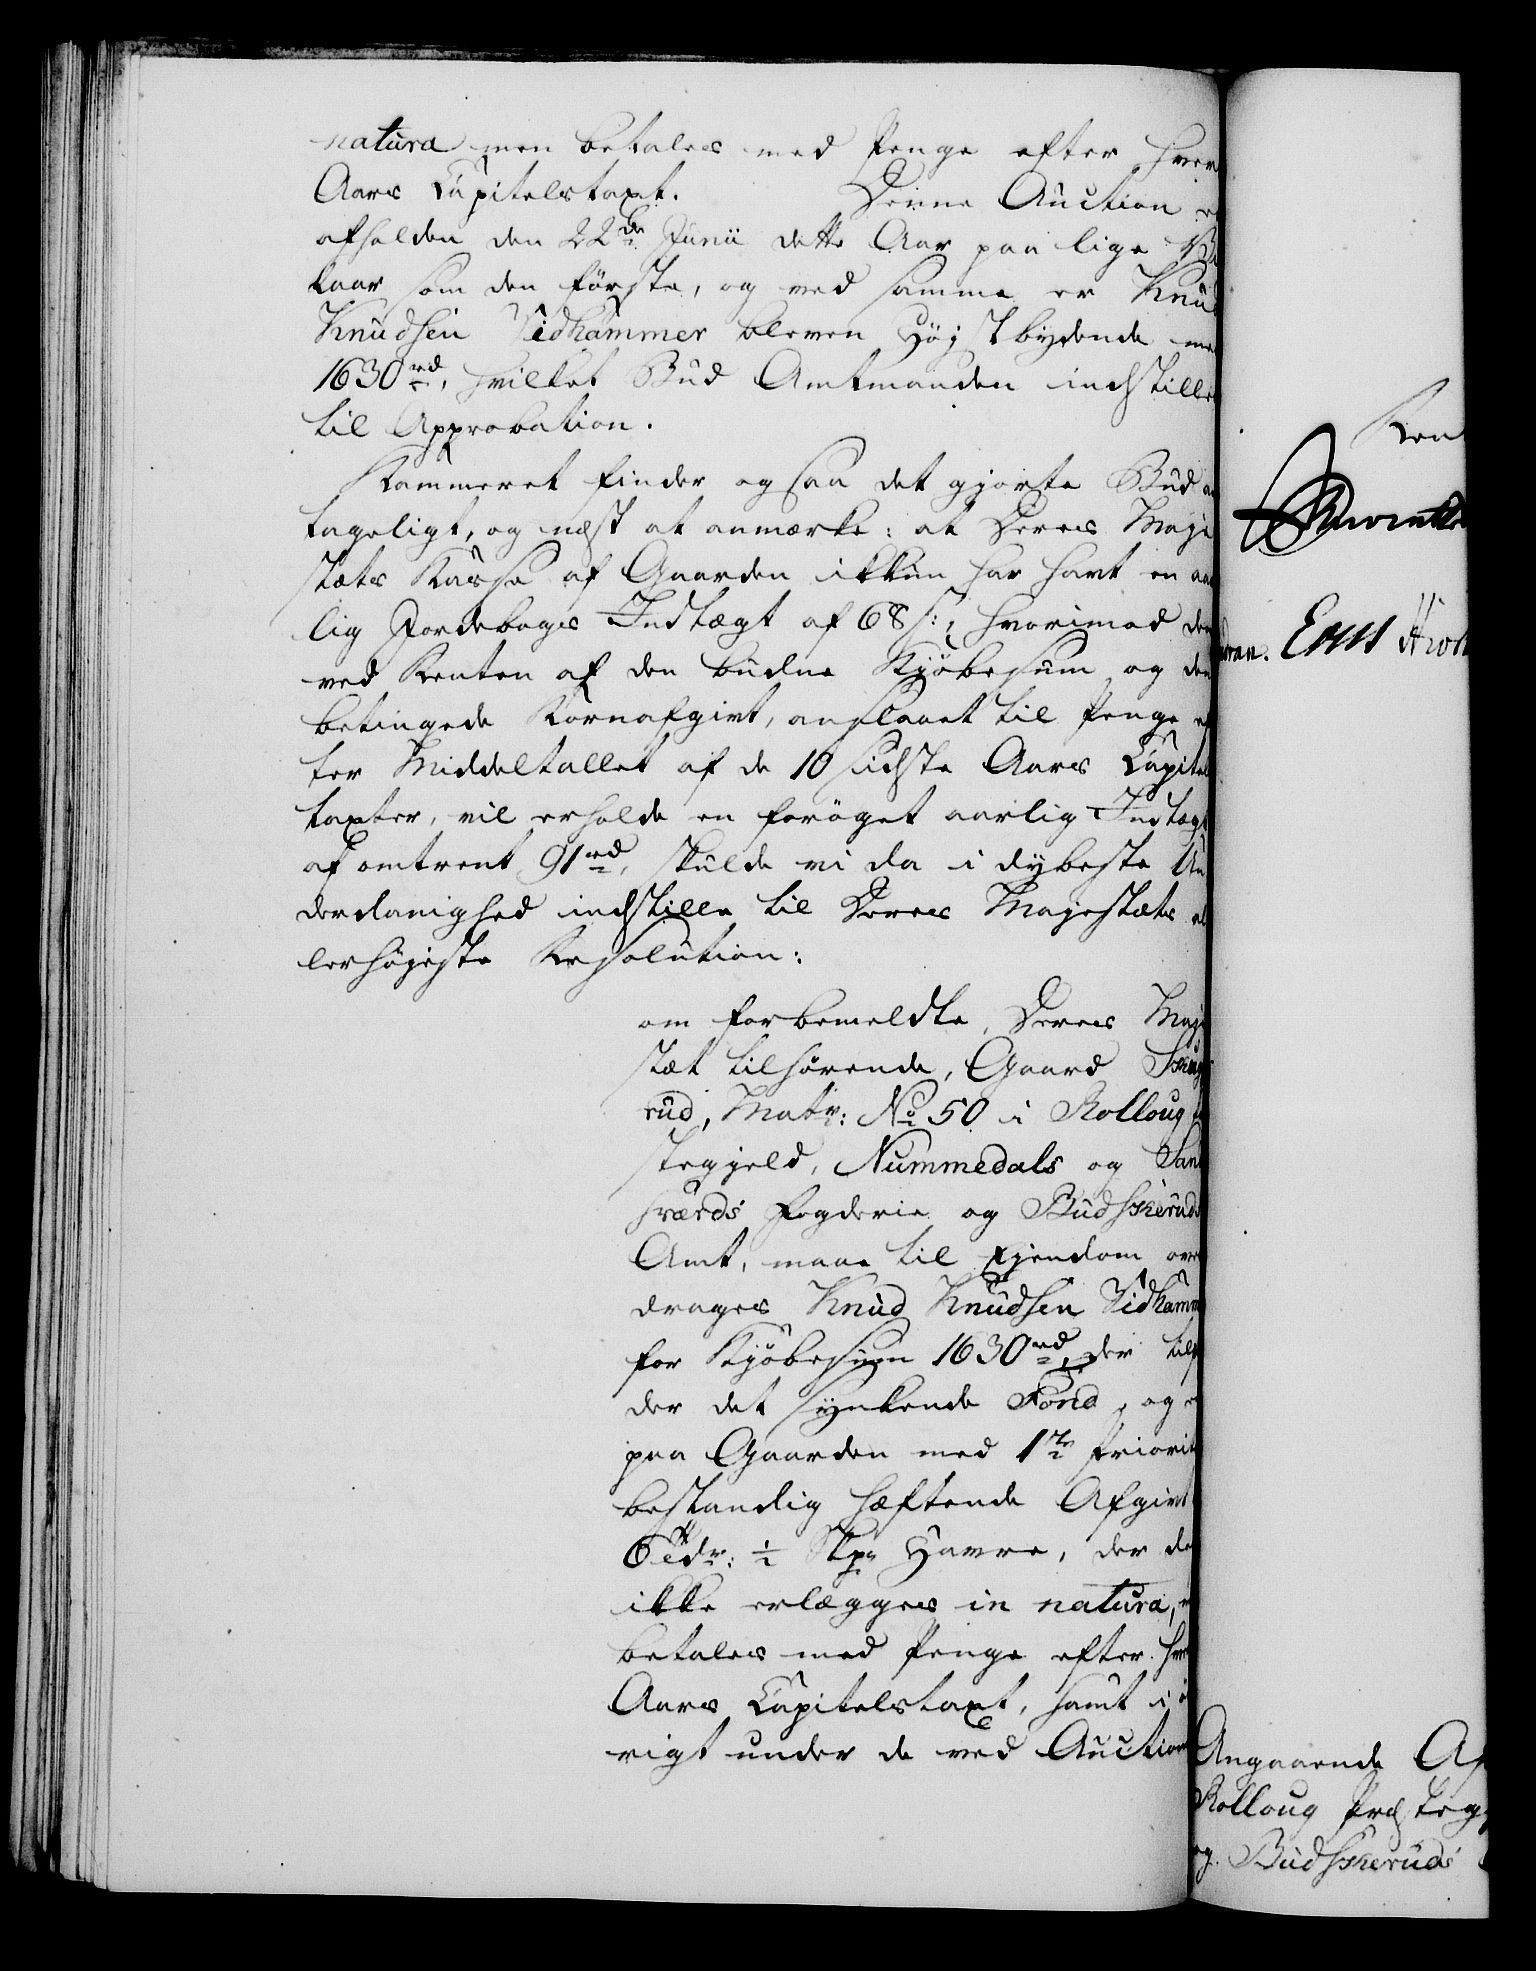 natura men betales med Penge efter hver
Aars Capitelstaxt. Denne Auction
afholden den 22de Junii dette Aar paa lige
kaar som den første, og ved samme er Knud
Knudsen Vidhammer bleven Højstbydende med
1630 rd, hvilket Bud Amtmanden indstiller
til Approbation.
Kammeret finder ogsaa det gjorte Bud an
tageligt, og næst at anmærke: at Deres Maje
stæts Kasse af Gaarden ikkun har havt en aar
lig Jordebogs Indtægt af 68 s:, hvorimod den
ved Renten af den budne Kjøbesum og den
betingede Kornafgivt, anslaaet til Penge ef
ter Middeltallet af de 10 sidste Aars Capitels
taxter, vil erholde en forøget aarlig Indtægt
af omtrent 91 rd, skulde vi da i dybeste Un
derdanighed indstille til Deres Majestæts al
lerhøjeste Resolution:
om forbemeldte, Deres Maje
stæt tilhørende, Gaard
rud, Matr: No 50 i Rolloug
stegjeld, Nummedals og Sand
sværds Fogderie og Budskeruds
Amt, maae til Ejendom over
drages Knud Knudsen Vidhamm
for Kjøbesum 1630 rd, der tilfal
der det synkende Fond, og en
paa Gaarden med 1te Priorit
bestandig hæftende Afgivt
6 Tdr: ½ Skp Havre, der dog
ikke erlægges in natura,
betales med Penge efter hver
Aars Capitelstaxt, samt i ø
rigt under de ved Auction
Ren
Angaaende Af
Rolloug Præsteg
og Budskeruds